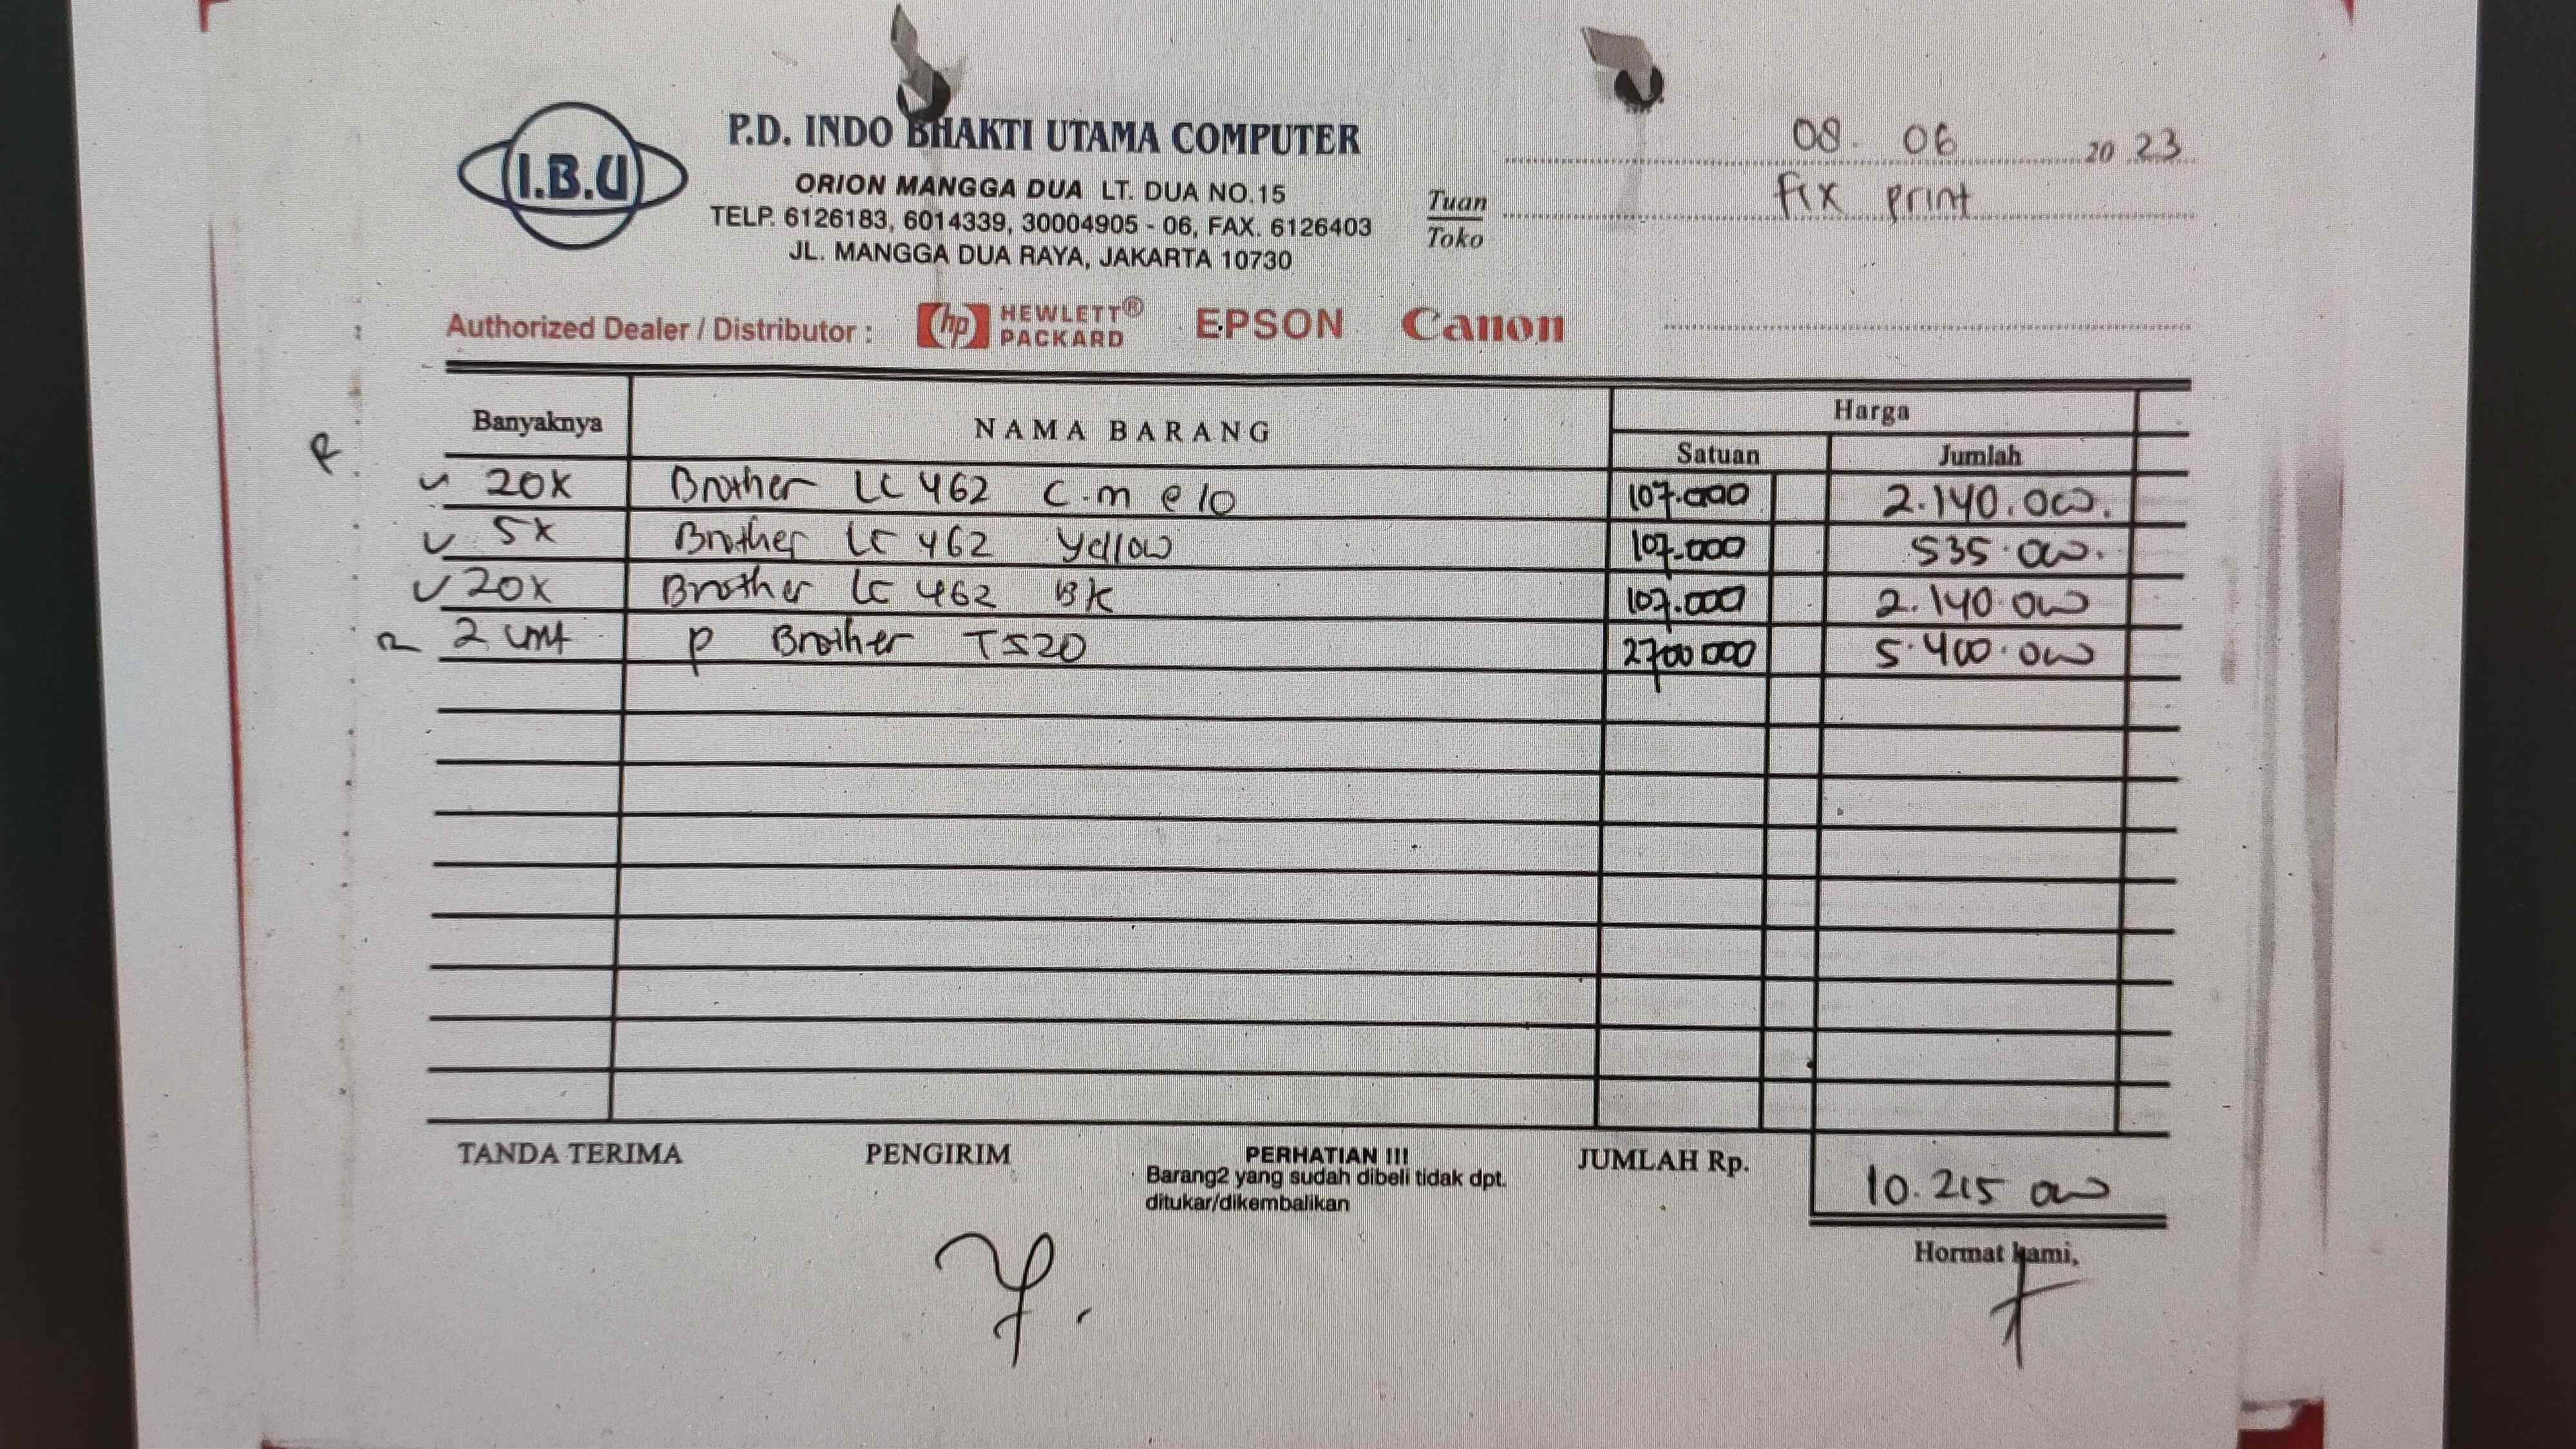 I.B.U
P.D. INDO BHAKTI UTAMA COMPUTER
ORION MANGGA DUA LT. DUA NO.15
TELP. 6126183, 6014339, 30004905 - 06, FAX. 6126403
JL. MANGGA DUA RAYA, JAKARTA 10730
08. 06 20 23
Tuan Fix print
Toko
Authorized Dealer / Distributor : hp HEWLETT® PACKARD EPSON Canon
Banyaknya NAMA BARANG Harga
Satuan Jumlah
20x Brother LC 462 C.m @ 10 107.000 2.140.000.
5x Brother LC 462 Yellow 107.000 535.000.
20x Brother LC 462 BK 107.000 2.140.000
2 unit p Brother T520 2700 000 5.400.000
TANDA TERIMA PENGIRIM PERHATIAN !!! JUMLAH Rp. 10.215 000
Barang2 yang sudah dibeli tidak dpt.
ditukar/dikembalikan
Hormat kami,